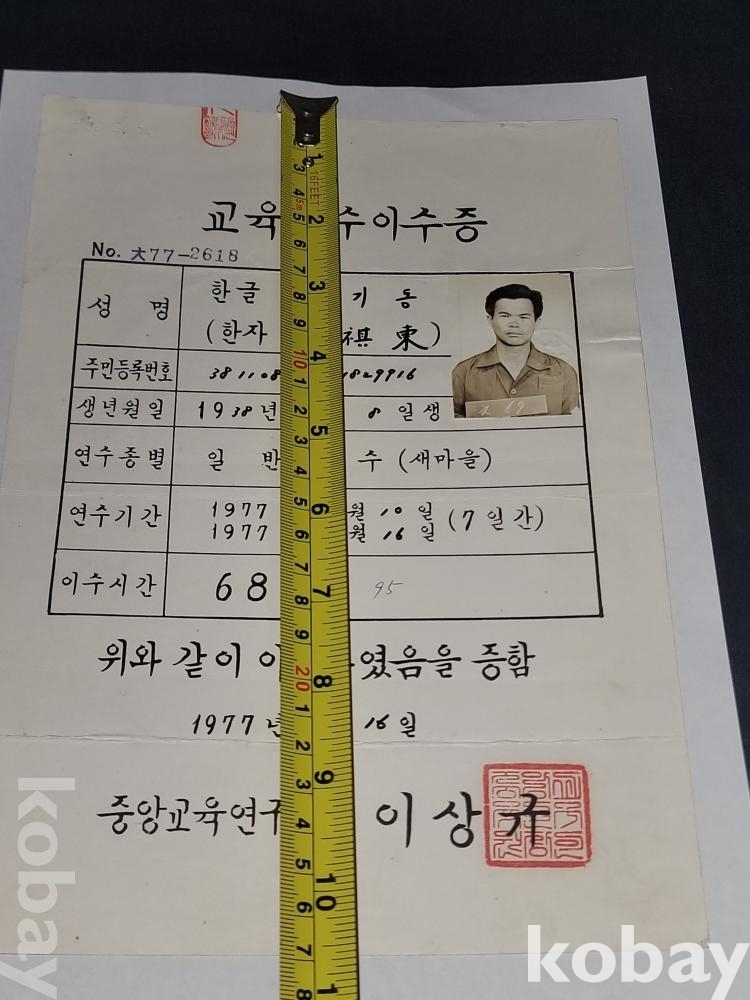 교육 수이수증
No. 大77-2618
성 명
한글 기 동
(한자 祺 東)
주민등록번호 381108 1829916
생년월일 1938년 8 일생
연수종별 일 반 수 (새마을)
연수기간
1977 월 10 일
1977 월 16 일
(7 일간)
이수시간 68 95
위와 같이 이 였음을 증함
1977년 16일
중앙교육연구 이 상 규
16FEET
5m
kobay
kobay